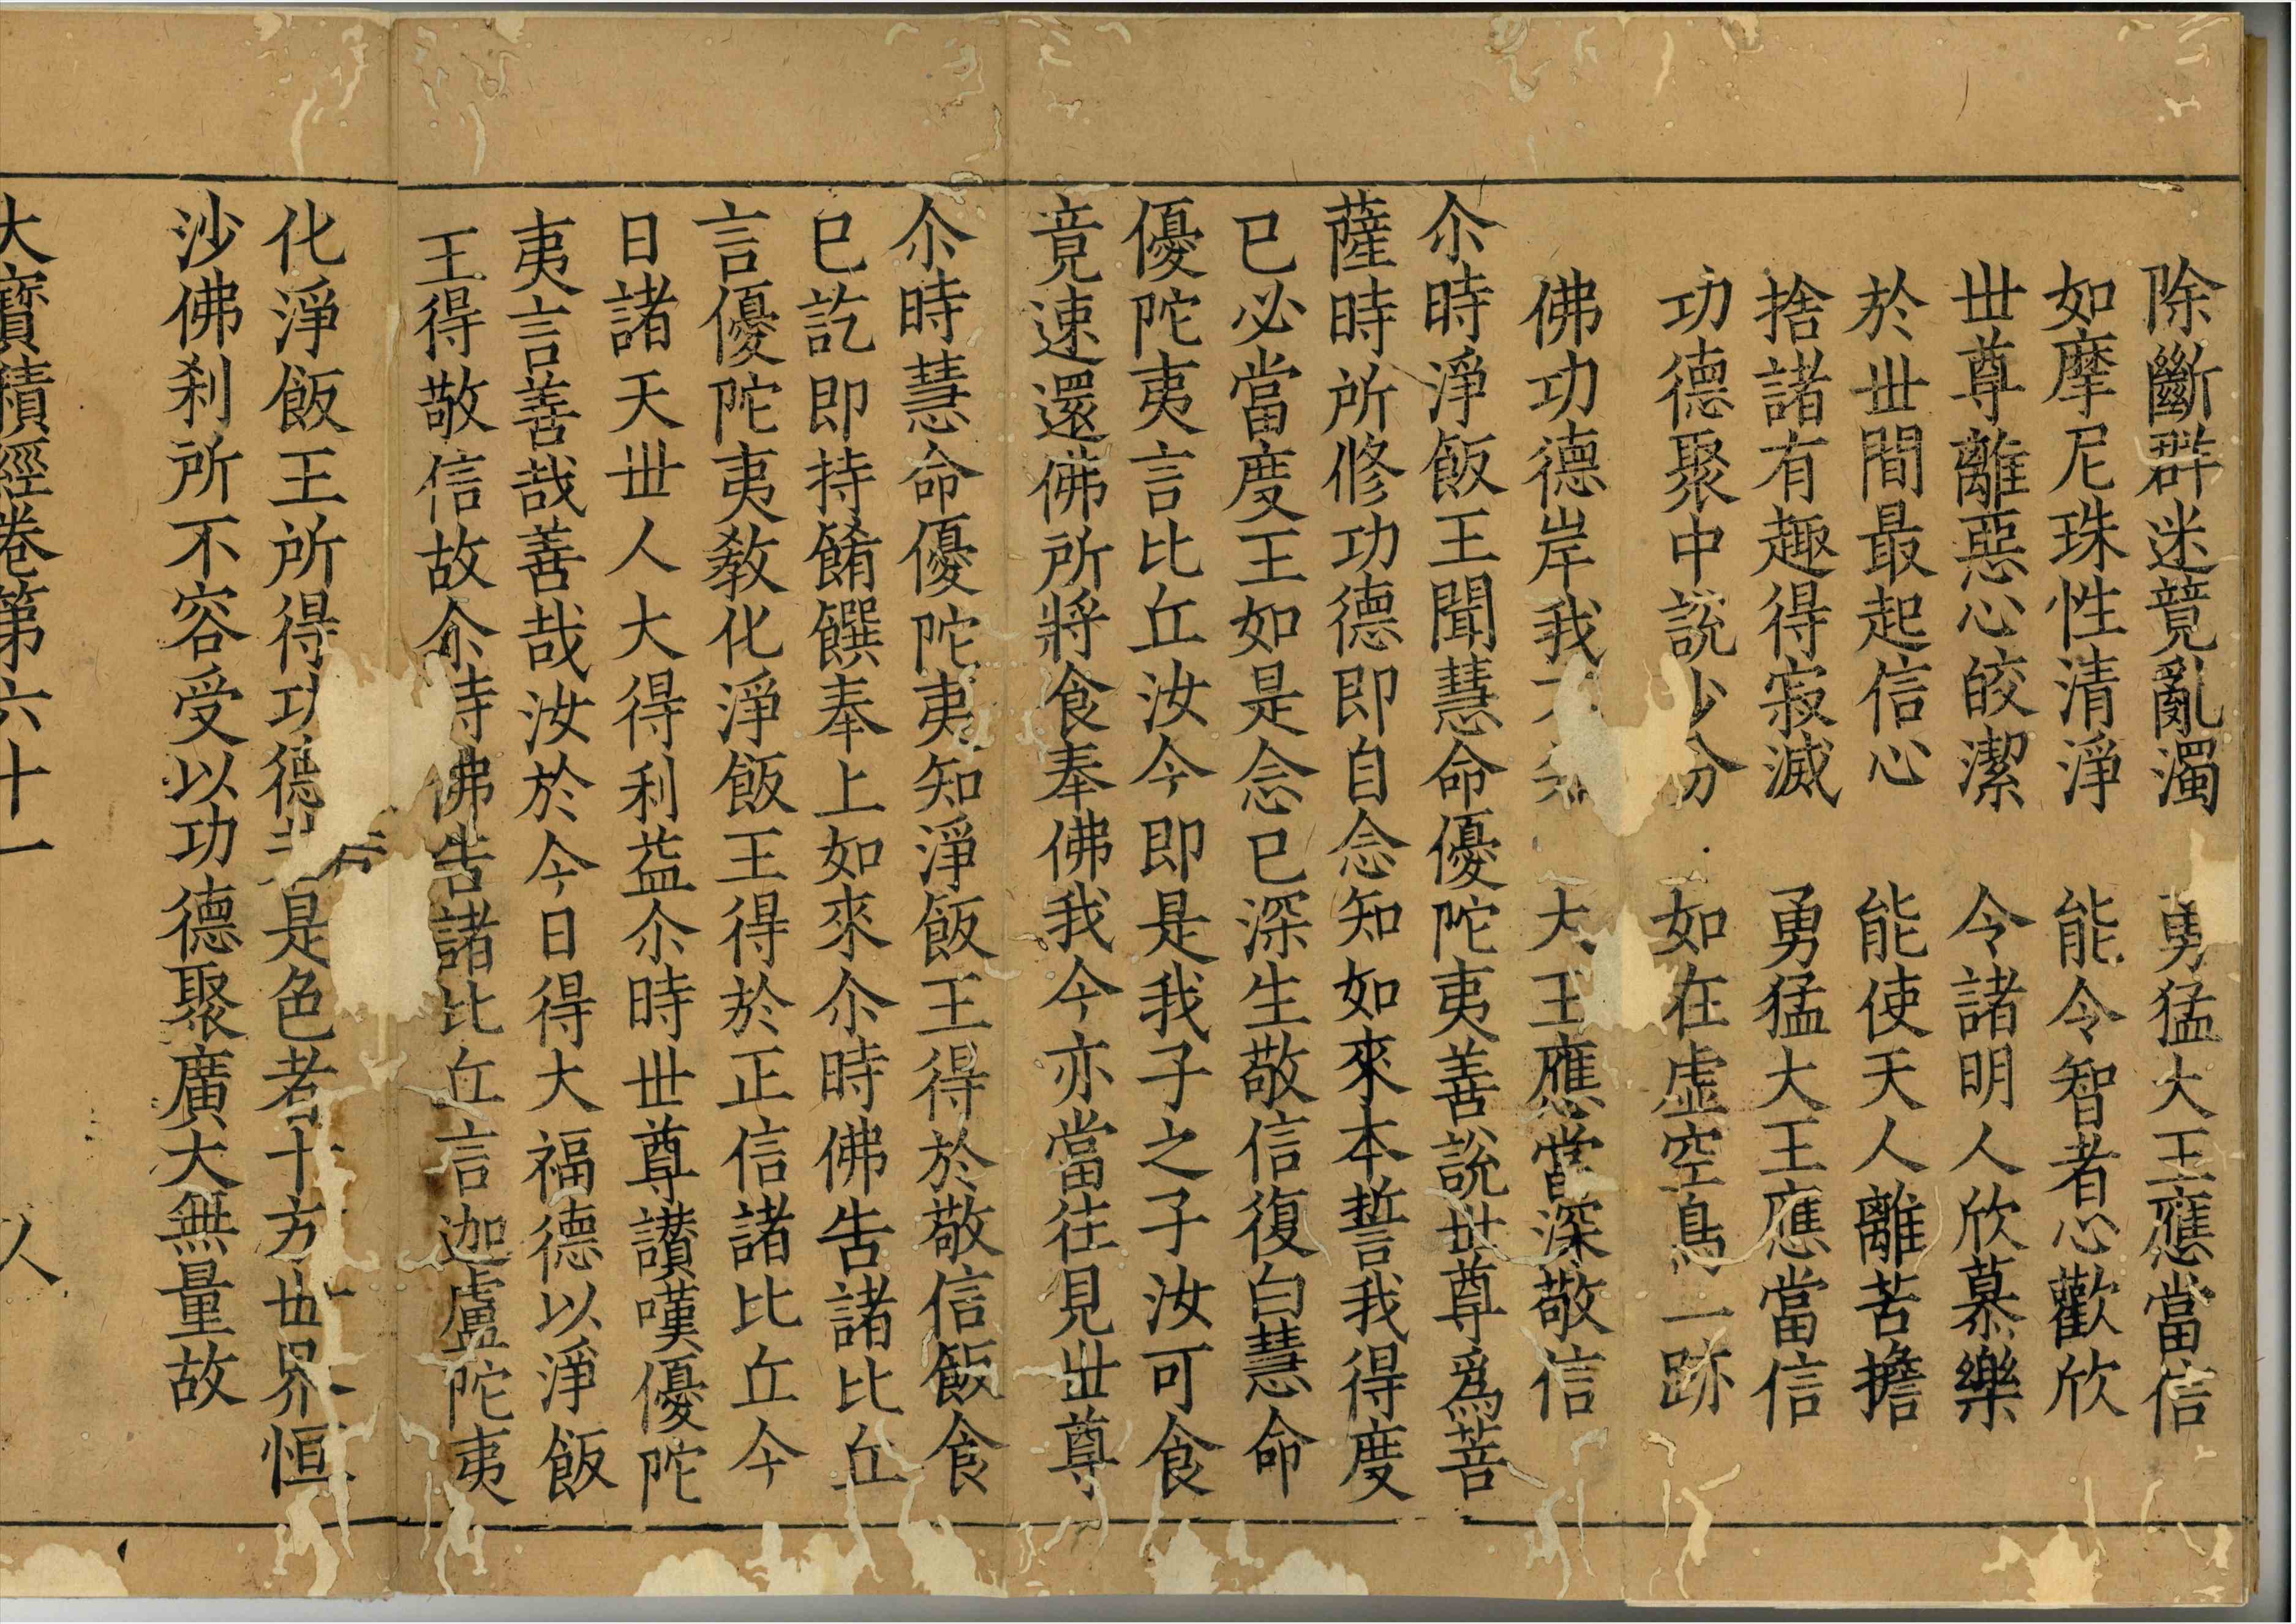 除斷群迷竟亂濁　勇猛大王應當信
如摩尼珠性清淨　能令智者心歡欣
丗尊離惡心皎潔　令諸明人欣慕樂
於丗間最起信心　能使天人離苦擔
捨諸有趣得寂滅　勇猛大王應當信
功德聚中說少分　如在虛空鳥一跡
佛功德岸我　大王應當深敬信
尒時淨飯王聞慧命優陀夷善說世尊爲菩
薩時所修功德即自念知如來本誓我得度
已必當度王如是念已深生敬信復白慧命
優陀夷言比丘汝今即是我子之子汝可食
竟速還佛所將食奉佛我今亦當往見丗尊
尒時慧命優陀夷知淨飯王得於敬信飯食
已訖即持餚饌奉上如來尒時佛告諸比丘
言優陀夷教化淨飯王得於正信諸比丘今
日諸天丗人大得利益尒時丗尊讃嘆優陀
夷言善哉善哉汝於今日得大福德以淨飯
王得敬信故尒時佛告諸比丘言迦盧陀夷
化淨飯王所得功德若是色者十方世界恒
沙佛刹所不容受以功德聚廣大無量故
大寶積經卷第六十一　人